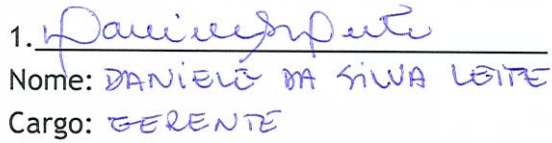 1.
Nome: DANIELE DA SILVA LEITE
Cargo: GERENTE